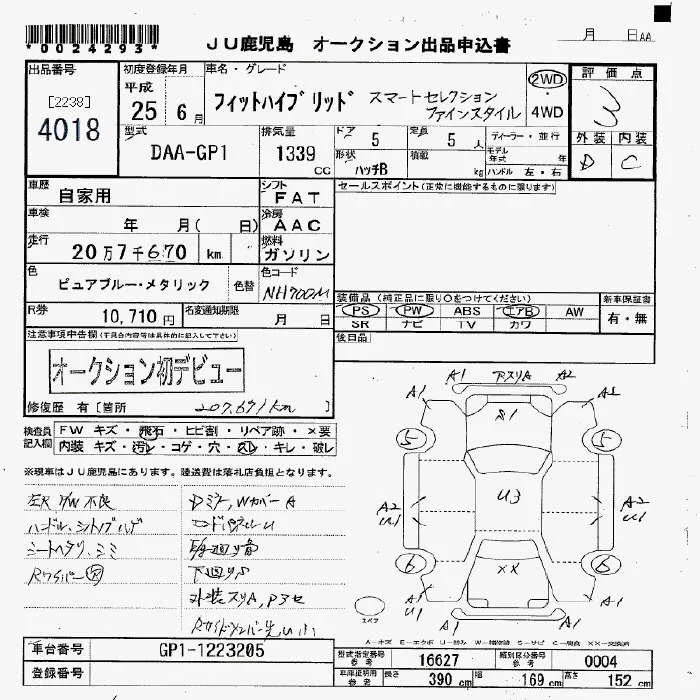 *0024293*
JU鹿児島 オークション出品申込書
月 日AA
出品番号
[2238]
4018
初度登録年月
平成
25 6月
車名・グレード
フィットハイブリッド スマートセレクション
ファインスタイル
2WD
・
4WD
評価点
3
外装 内装
D C
型式
DAA-GP1
排気量
1339
CC
ドア
5
定員
5人
ディーラー・並行
形状
ハッチB
積載
kg
モデル
年式 年
ハンドル 左・右
車歴
自家用
シフト
FAT
セールスポイント(正常に機能するものに限ります)
車検
年 月( 日)
冷房
AAC
走行
20万7千670 km
燃料
ガソリン
色
ピュアブルー・メタリック
色替
色コード
NH700M
R券
10,710円
名変通知期限
月 日
装備品(純正品に限り○をつけてください)
PS PW ABS エアB AW
SR ナビ TV カワ
新車保証書
有・無
後日品
注意事項申告欄(不具合内容等は具体的に記入して下さい)
オークション初デビュー
修復歴 有[箇所 207,691km ]
検査員
記入欄
FW キズ・飛石・ヒビ割・リペア跡・×要
内装 キズ・汚レ・コゲ・穴・スレ・キレ・破レ
※現車はJU鹿児島にあります。陸送費は落札店負担となります。
左R P/W 不良
ハンドル、シフトノブハゲ
シートヘタリ、シミ
Rワイパー
Dミラー、WカバーA
下廻りS
外装スリA、Pヨセ
A1 下スリA A2
A1 A1
S1
5 5
A2
U1
U3
A2
U1
6 6
××
A1
U1
A1
スペア
A-キズ E-エクボ U-凹み W-補修跡 S-サビ C-腐食 ××-交換済
車台番号
GP1-1223205
登録番号
型式指定番号
参考
16627
類別区分番号
参考
0004
車庫証明用
参考
長さ
390 cm
幅
169 cm
高さ
152 cm